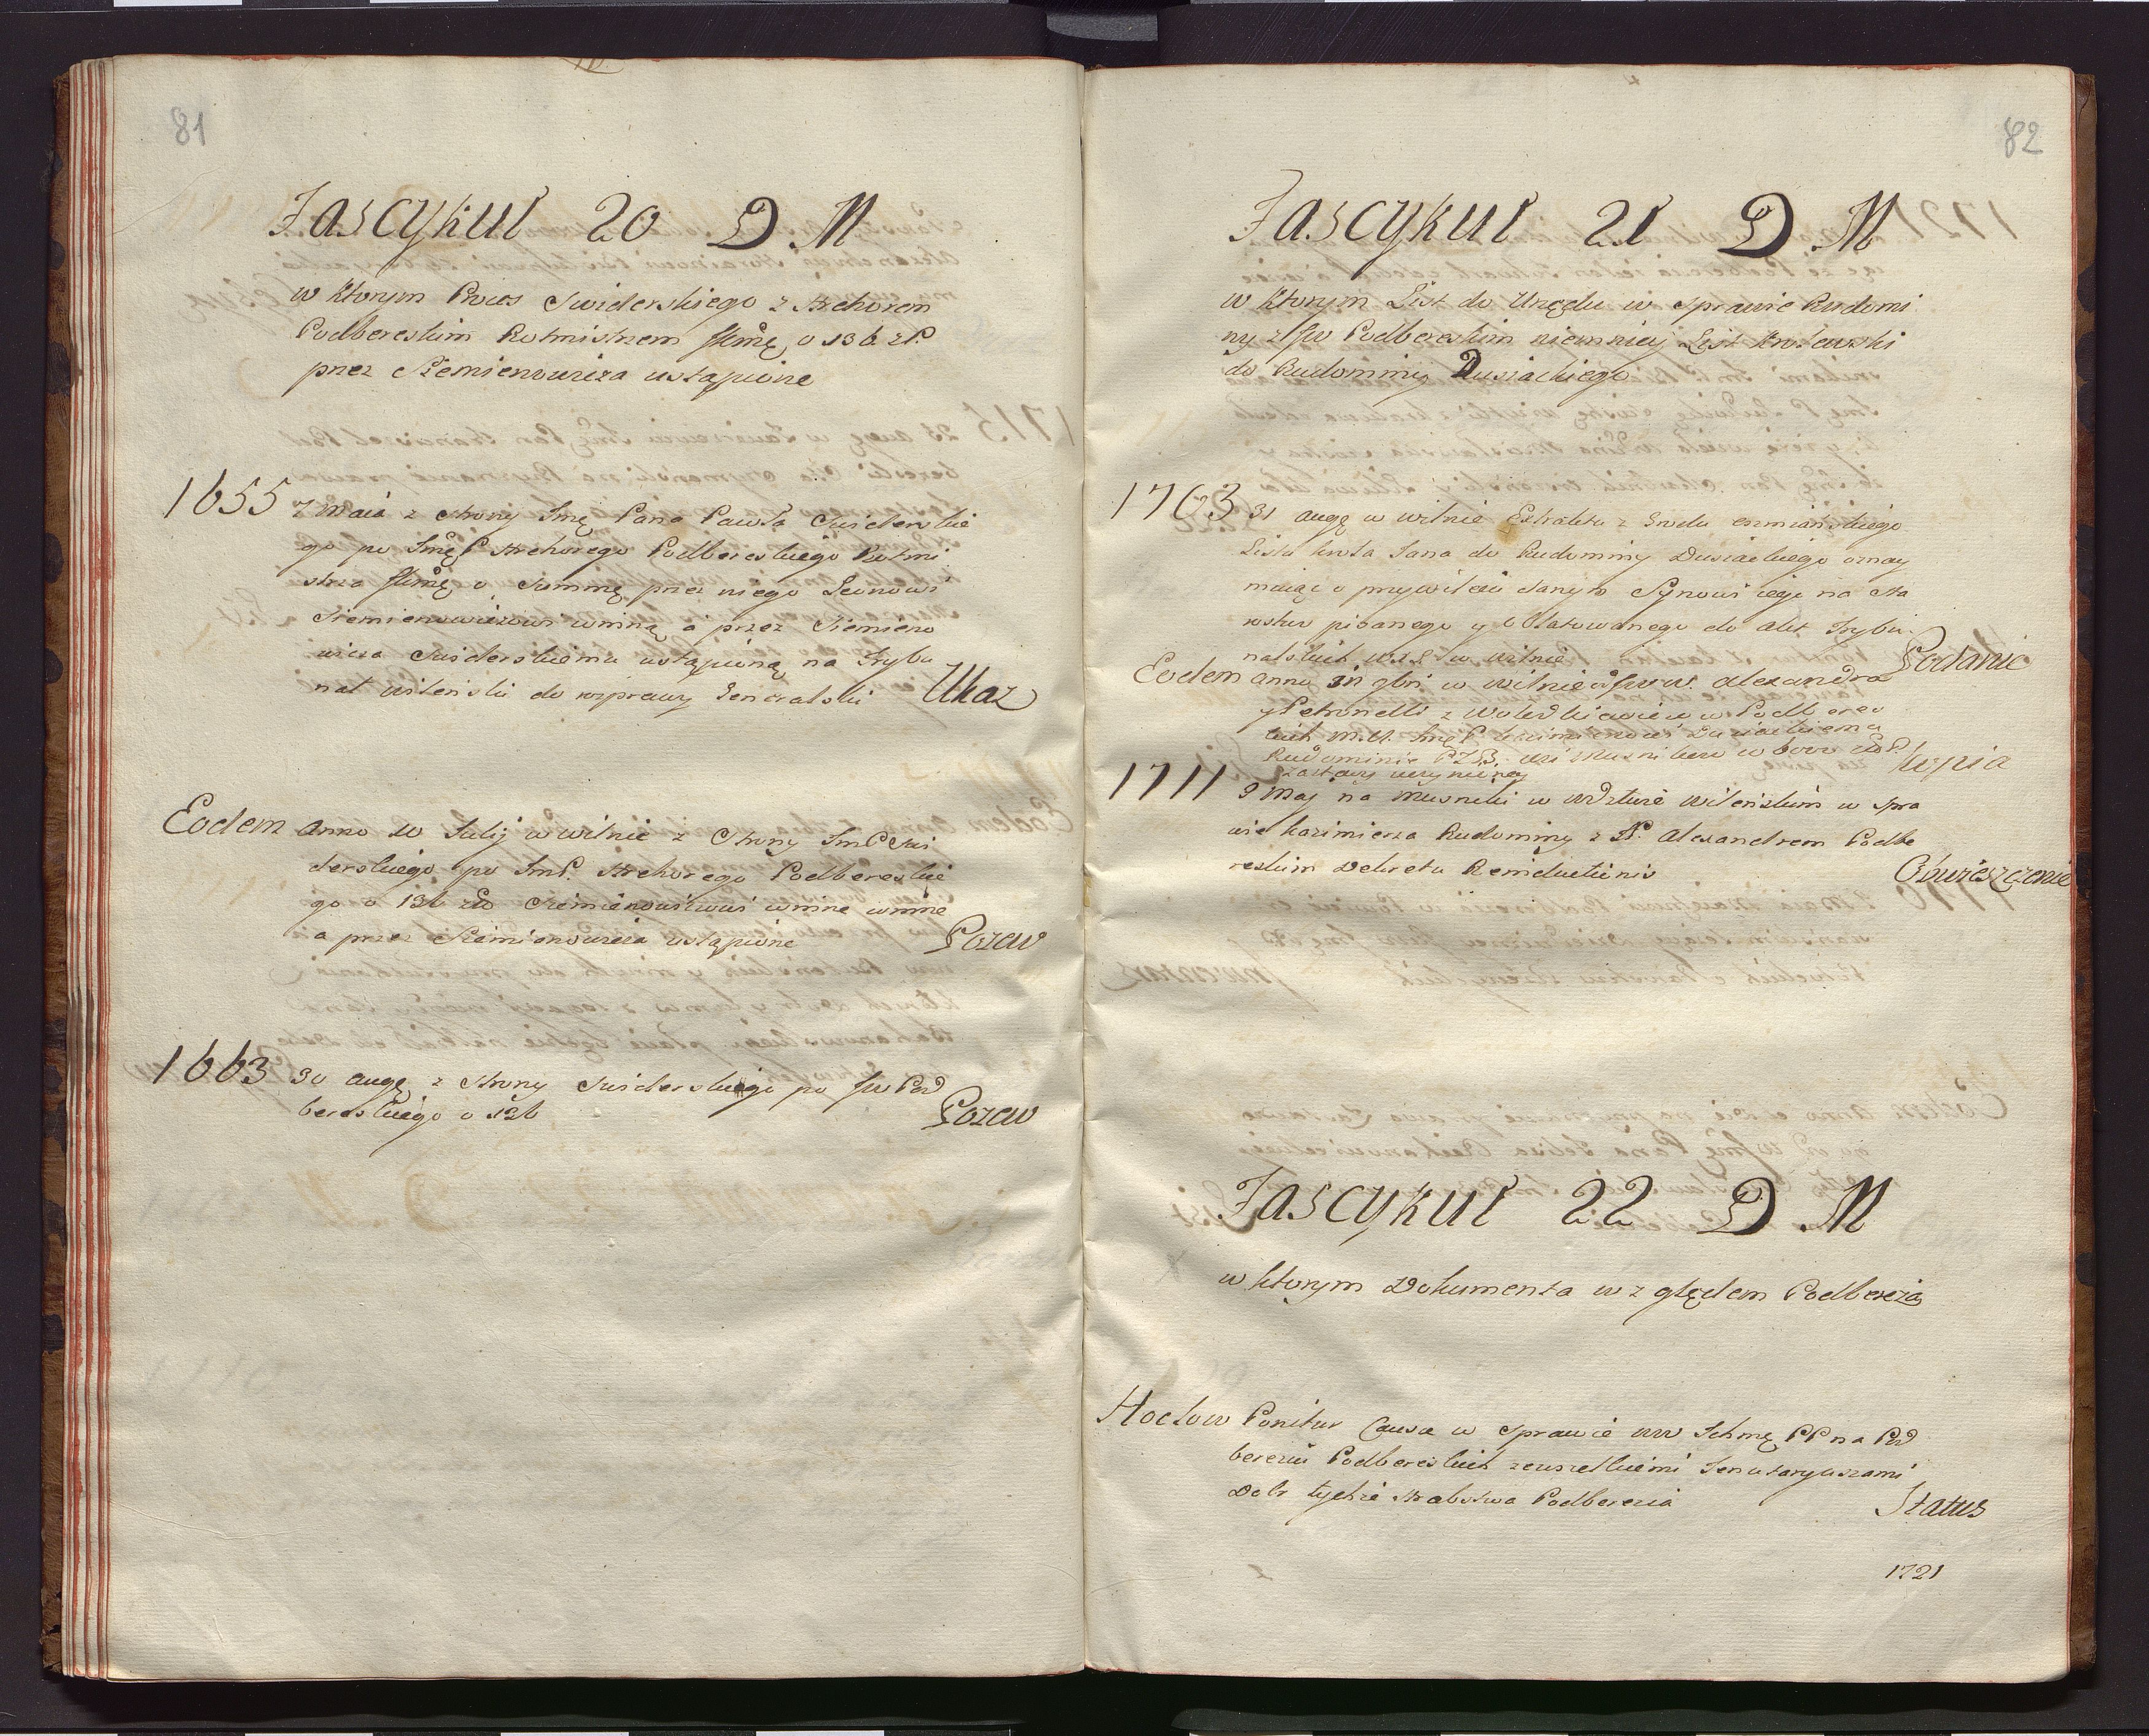 81
Fascykuł 20 D M
w ktorym Proces Swiderskiego z Frehorem
Podbereskim Rotmistrzem JKMę o 136 zł.
przez Siemienowicza ustąpione
1655 7 Maia z strony Jmę Pana Pawła Swiderskie
go po Jmę P Frehorego Podbereskiego Rotmi
strza JKMę o summę przez niego Leonowi
Siemienowiczowi winną a przez Siemieno
wicza Swiderskiemu ustąpioną na Trybu
nał wilenski do rosprawy Generalski Ukaz
Eodem anno 10 Julij w wilnie z strony JmP Swi
derskiego po JmP. Frehorego Podbereskie
go o 136 zło Siemienowiczowi winne winne
a przez Siemienowicza ustąpione Pozew
1663 30 augę z strony Swiderskiego po JW Pod
bereskiego o 136 Pozew
82
Fascykuł 21 D M
w ktorym List do Urzędu w sprawie Rudomi
ny z JW Podbereskim niemniey List krolewski
do Rudominy Dusiackiego
1703 31 augę w wilnie Extraktu z Grodu oszmianskiego
Listu krola Jana do Rudominy Dusiackiego oznay
muiąc o przywileiu danym Synowi iego na sta
rostwo pisanego y oblatowanego do akt Trybu
nalskich w wilnie Podanie
Eodem anno 8bri w wilnie JWW. alexandra
y Petronelli z Podberes
kich Jmę P kazimierzowi Dusiackiemu
Rudominie
zastawy uczynioney kopia
1711 9 Maj na Musniki w wdztwie wilenskim w spra
wie kazimierza Rudominy z P. Alexandrem Podbe
reskim Dekretu Remidukcinis Obwieszczenie
Fascykuł 22 D M
w ktorym Dokumenta względem Podbereza
Hoctow Ponitur Causa w sprawie WW Ichmę PP na Pod
bereziu Podbereskich zewszelkiemi Tenutaryuszami
Dobr tychże Hrabstwa Podbereza Status
1721